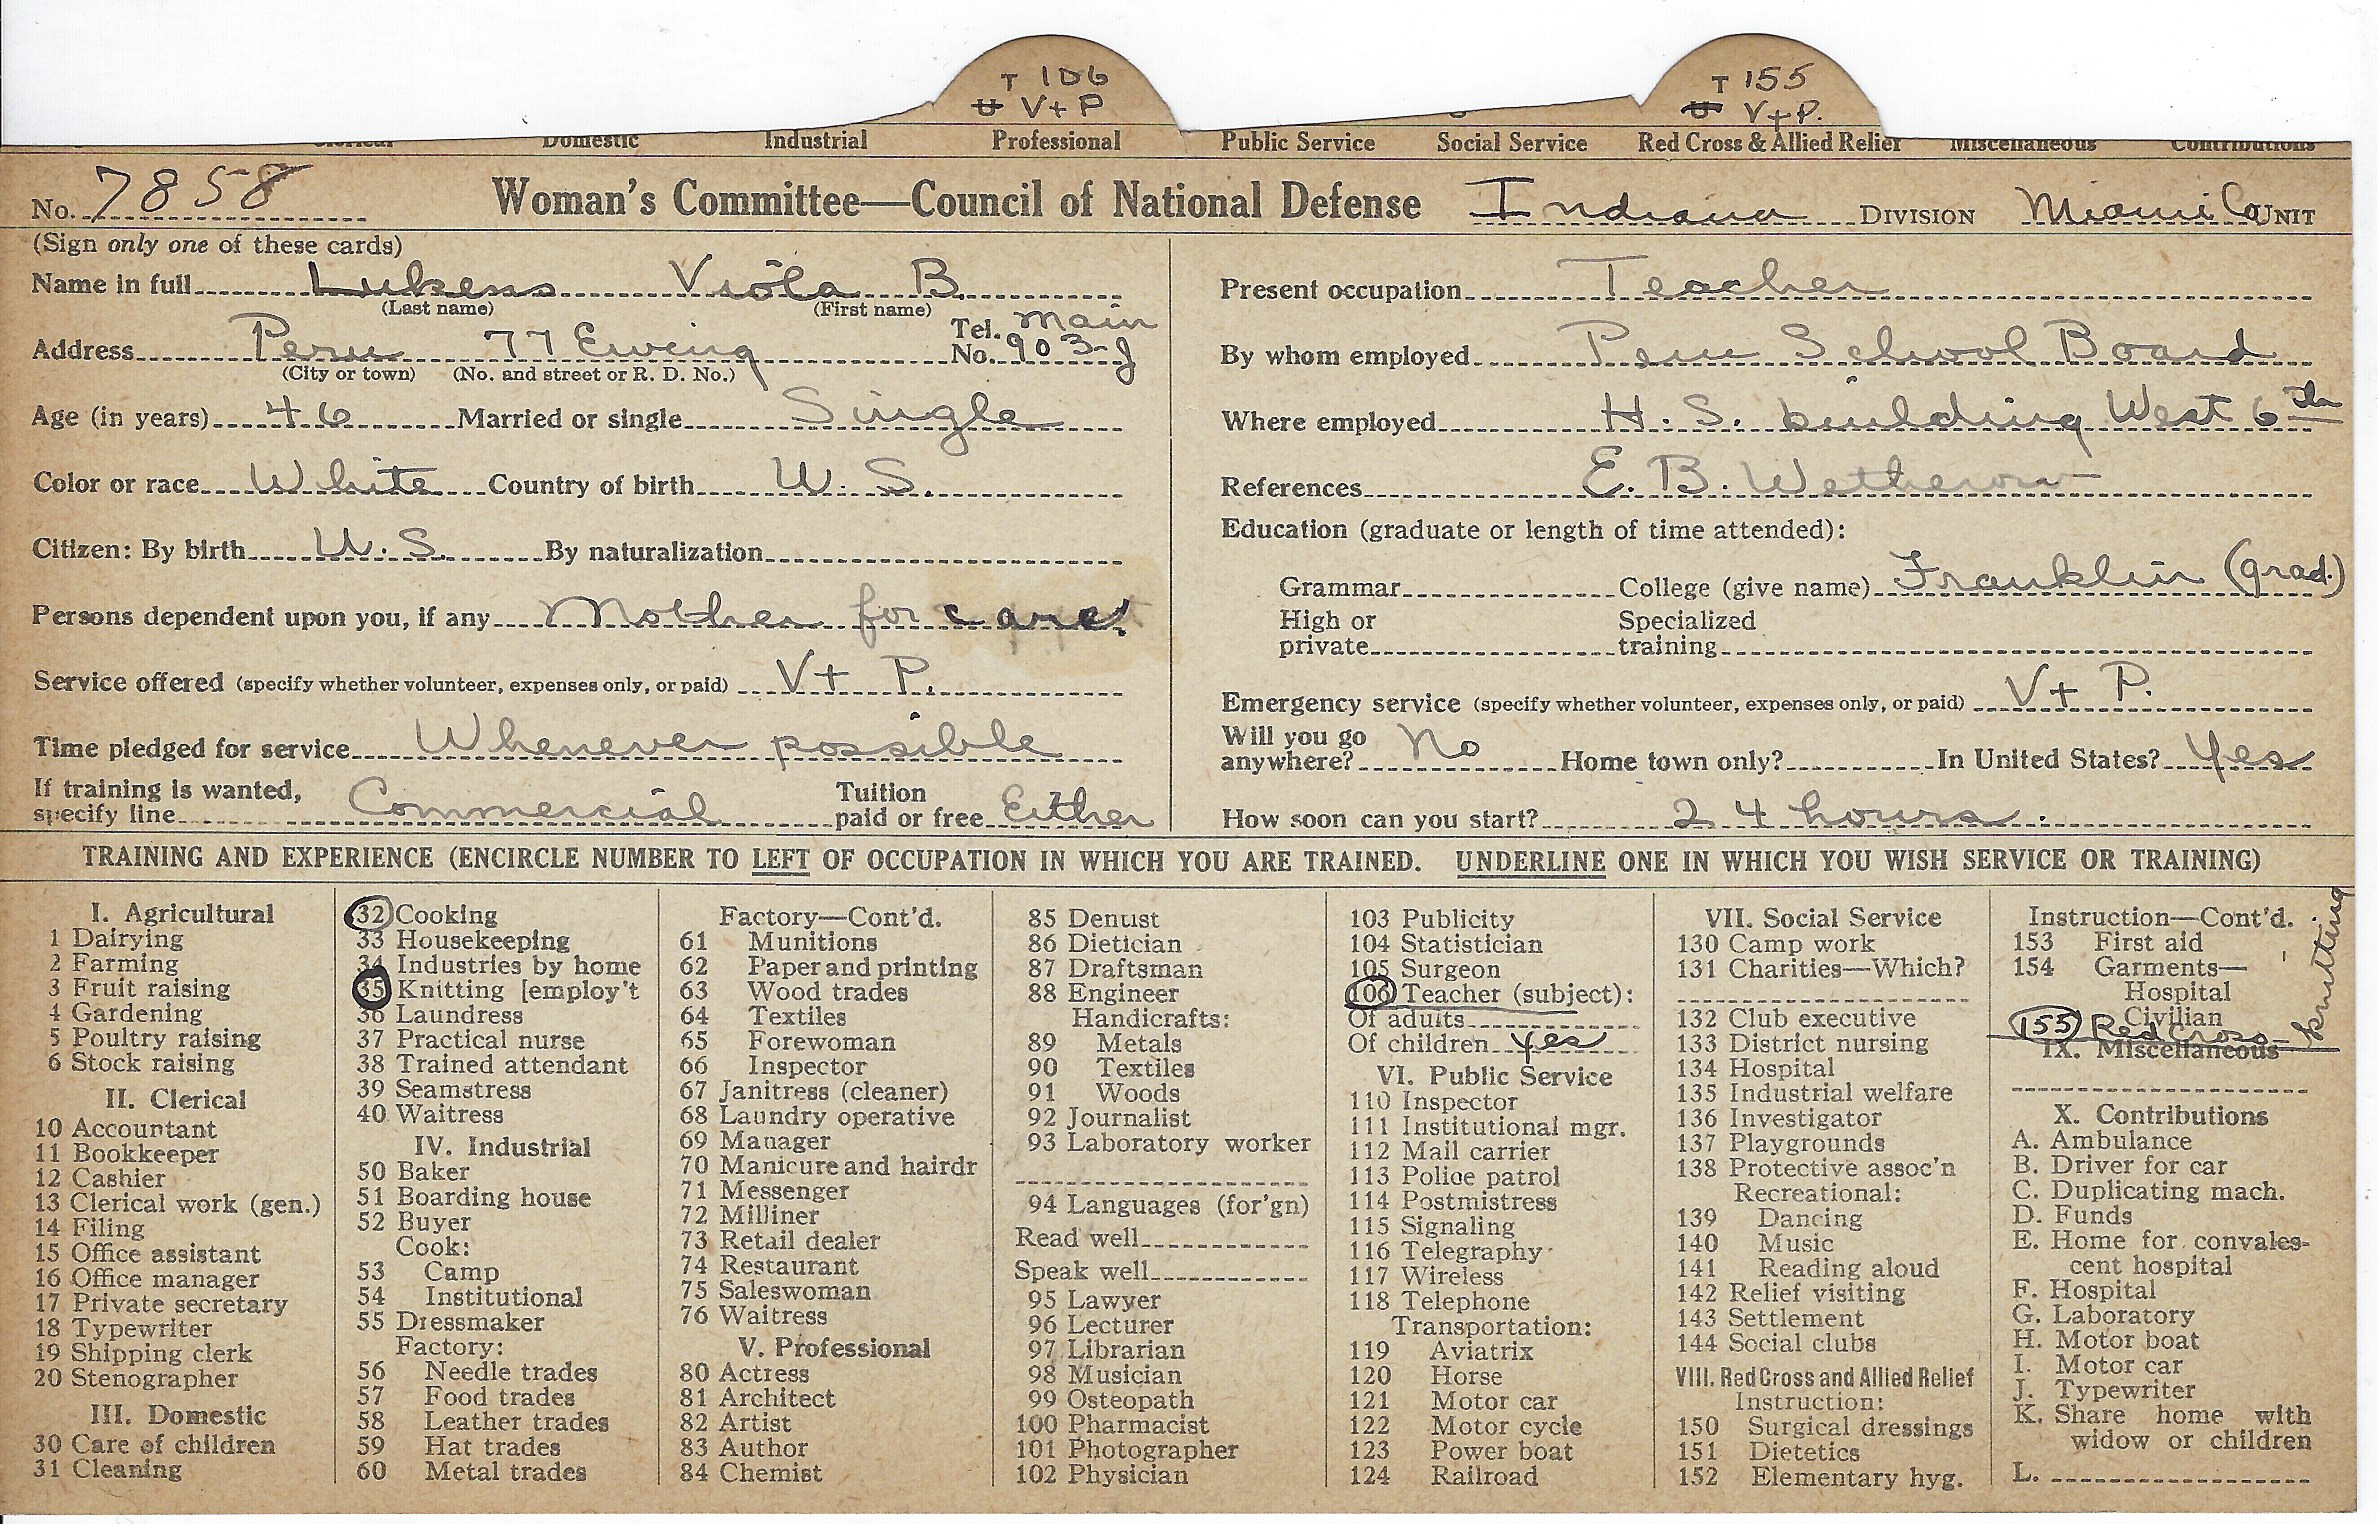 T 106 T 155
U V+P U V+P.
Clerical Domestic Industrial Professional Public Service Social Service Red Cross & Allied Relief Miscellaneous Contributions
No. 7858 Woman's Committee—Council of National Defense Indiana DIVISION Miami Co UNIT
(Sign only one of these cards)
Name in full Lukens Viola B.
(Last name) (First name)
Address Peru 77 Ewing Tel. No. Main 903-J
(City or town) (No. and street or R. D. No.)
Age (in years) 46 Married or single Single
Color or race White Country of birth U. S.
Citizen: By birth U. S. By naturalization
Persons dependent upon you, if any Mother for care
Service offered (specify whether volunteer, expenses only, or paid) V + P.
Time pledged for service Whenever possible
If training is wanted,
specify line Commercial Tuition paid or free Either
Present occupation Teacher
By whom employed Peru School Board
Where employed H. S. building West 6th
References E. B. Wetherow
Education (graduate or length of time attended):
Grammar College (give name) Franklin (grad.)
High or private Specialized training
Emergency service (specify whether volunteer, expenses only, or paid) V + P.
Will you go anywhere? No Home town only? In United States? Yes
How soon can you start? 24 hours.
TRAINING AND EXPERIENCE (ENCIRCLE NUMBER TO LEFT OF OCCUPATION IN WHICH YOU ARE TRAINED. UNDERLINE ONE IN WHICH YOU WISH SERVICE OR TRAINING)
I. Agricultural
1 Dairying
2 Farming
3 Fruit raising
4 Gardening
5 Poultry raising
6 Stock raising
II. Clerical
10 Accountant
11 Bookkeeper
12 Cashier
13 Clerical work (gen.)
14 Filing
15 Office assistant
16 Office manager
17 Private secretary
18 Typewriter
19 Shipping clerk
20 Stenographer
III. Domestic
30 Care of children
31 Cleaning
32 Cooking
33 Housekeeping
34 Industries by home
35 Knitting [employ't
36 Laundress
37 Practical nurse
38 Trained attendant
39 Seamstress
40 Waitress
IV. Industrial
50 Baker
51 Boarding house
52 Buyer
Cook:
53 Camp
54 Institutional
55 Dressmaker
Factory:
56 Needle trades
57 Food trades
58 Leather trades
59 Hat trades
60 Metal trades
Factory—Cont'd.
61 Munitions
62 Paper and printing
63 Wood trades
64 Textiles
65 Forewoman
66 Inspector
67 Janitress (cleaner)
68 Laundry operative
69 Manager
70 Manicure and hairdr
71 Messenger
72 Milliner
73 Retail dealer
74 Restaurant
75 Saleswoman
76 Waitress
V. Professional
80 Actress
81 Architect
82 Artist
83 Author
84 Chemist
85 Dentist
86 Dietician
87 Draftsman
88 Engineer
Handicrafts:
89 Metals
90 Textiles
91 Woods
92 Journalist
93 Laboratory worker
94 Languages (for'gn)
Read well
Speak well
95 Lawyer
96 Lecturer
97 Librarian
98 Musician
99 Osteopath
100 Pharmacist
101 Photographer
102 Physician
103 Publicity
104 Statistician
105 Surgeon
106 Teacher (subject):
Of adults
Of children yes
VI. Public Service
110 Inspector
111 Institutional mgr.
112 Mail carrier
113 Police patrol
114 Postmistress
115 Signaling
116 Telegraphy
117 Wireless
118 Telephone
Transportation:
119 Aviatrix
120 Horse
121 Motor car
122 Motor cycle
123 Power boat
124 Railroad
VII. Social Service
130 Camp work
131 Charities—Which?
132 Club executive
133 District nursing
134 Hospital
135 Industrial welfare
136 Investigator
137 Playgrounds
138 Protective assoc'n
Recreational:
139 Dancing
140 Music
141 Reading aloud
142 Relief visiting
143 Settlement
144 Social clubs
VIII. Red Cross and Allied Relief
Instruction:
150 Surgical dressings
151 Dietetics
152 Elementary hyg.
Instruction—Cont'd.
153 First aid
154 Garments—
Hospital
Civilian
155 Red Cross - knitting
IX. Miscellaneous
X. Contributions
A. Ambulance
B. Driver for car
C. Duplicating mach.
D. Funds
E. Home for convales-
cent hospital
F. Hospital
G. Laboratory
H. Motor boat
I. Motor car
J. Typewriter
K. Share home with
widow or children
L.